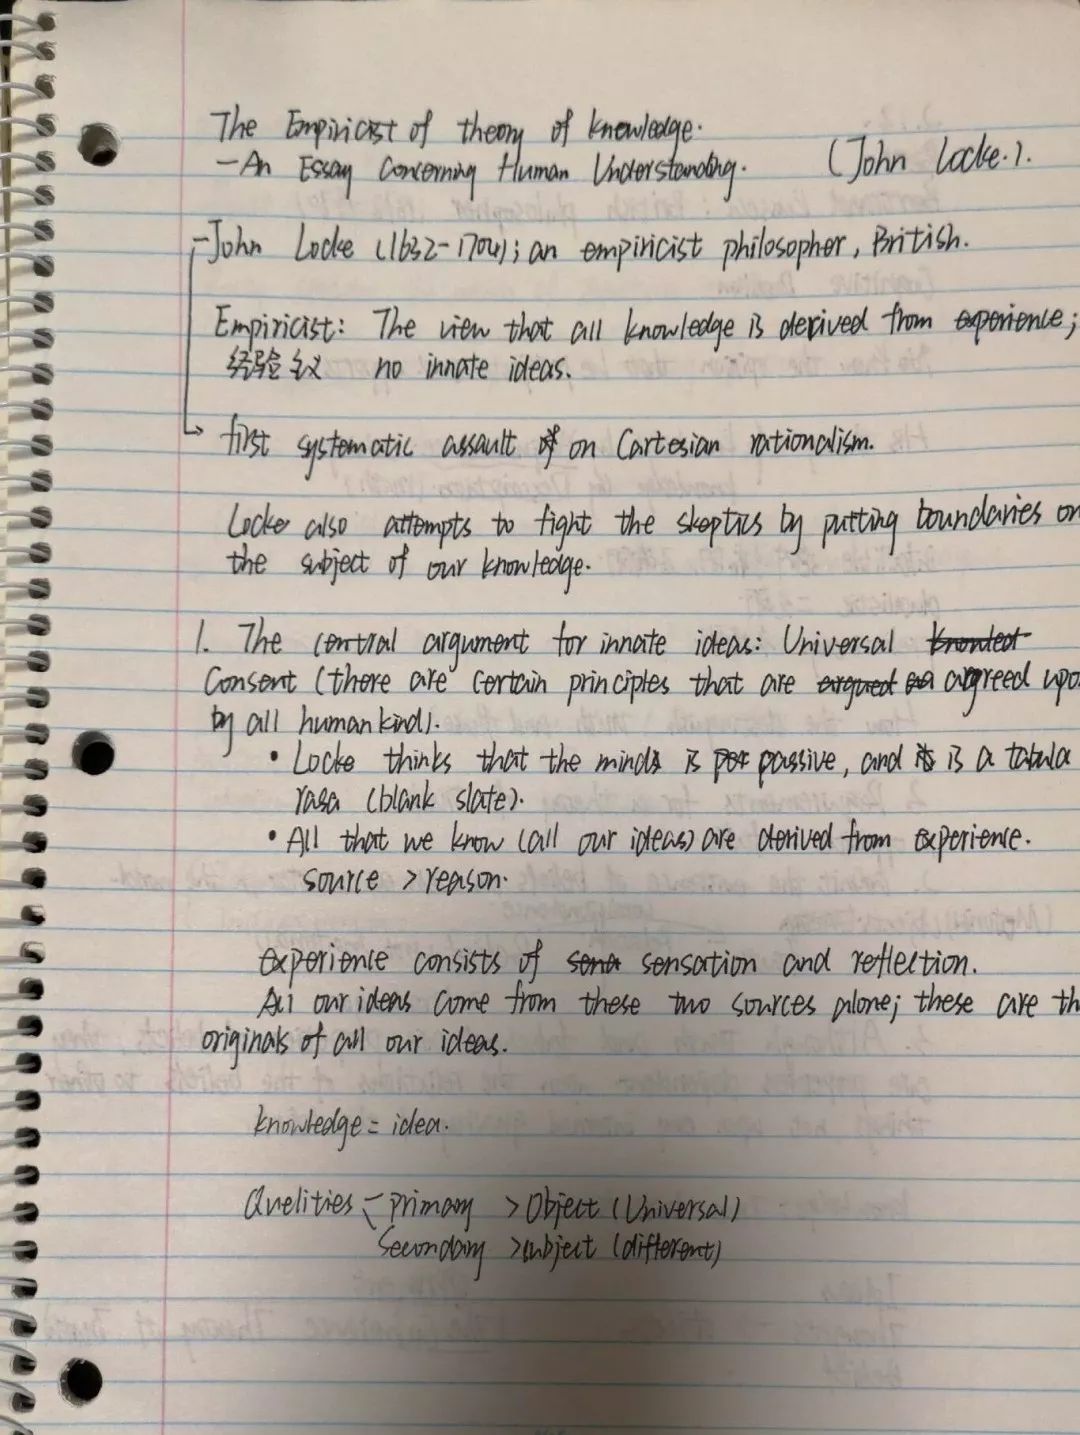 The Empiricist of theory of knowledge.
- An Essay Concerning Human Understanding. (John Locke.).
- John Locke (1632-1704); an empiricist philosopher, British.
Empiricist: The view that all knowledge is derived from experience;
经验主义 no innate ideas.
first systematic assault of on Cartesian rationalism.
Locke also attempts to fight the skeptics by putting boundaries on
the subject of our knowledge.
1. The central argument for innate ideas: Universal knowled
Consent (there are certain principles that are argued on argreed upo
by all humankind).
• Locke thinks that the minds is passive, and is is a tabula
rasa (blank slate).
• All that we know (all our ideas) are derived from experience.
source > reason.
Experience consists of sena sensation and reflection.
All our ideas come from these two sources alone; these are th
originals of all our ideas.
knowledge = idea.
Quelities - primary > Object (Universal)
Secondary > subject (different)